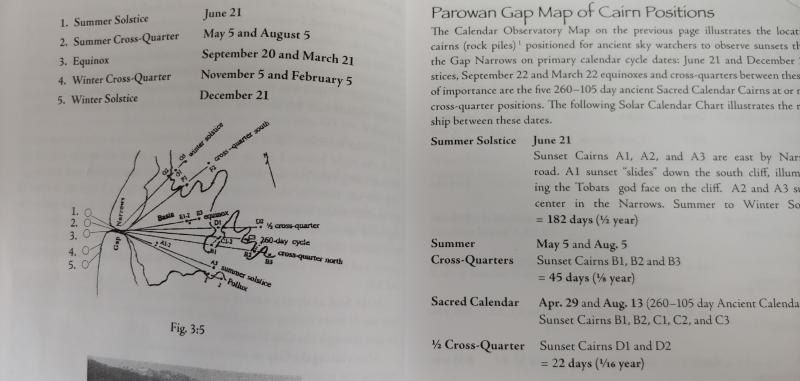 1. Summer Solstice June 21
2. Summer Cross-Quarter May 5 and August 5
3. Equinox September 20 and March 21
4. Winter Cross-Quarter November 5 and February 5
5. Winter Solstice December 21
winter solstice
cross-quarter south
G1
F1
F2
N
Basis
E1-2
E3
equinox
D1
D2
½ cross-quarter
Narrows
Gap
1.
2.
3.
4.
5.
A1-2
C1-2
C3
260-day cycle
B1
B2
B3
cross-quarter north
A3
summer solstice
Pollux
Fig. 3:5
Parowan Gap Map of Cairn Positions
The Calendar Observatory Map on the previous page illustrates the
cairns (rock piles)¹ positioned for ancient sky watchers to observe sunsets
the Gap Narrows on primary calendar cycle dates: June 21 and December
stices, September 22 and March 22 equinoxes and cross-quarters between
of importance are the five 260–105 day ancient Sacred Calendar Cairns at or
cross-quarter positions. The following Solar Calendar Chart illustrates the
ship between these dates.
Summer Solstice June 21
Sunset Cairns A1, A2, and A3 are east by
road. A1 sunset “slides” down the south cliff,
ing the Tobats god face on the cliff. A2 and A3
center in the Narrows. Summer to Winter
= 182 days (½ year)
Summer May 5 and Aug. 5
Cross-Quarters Sunset Cairns B1, B2 and B3
= 45 days (⅛ year)
Sacred Calendar Apr. 29 and Aug. 13 (260–105 day Ancient
Sunset Cairns B1, B2, C1, C2, and C3
½ Cross-Quarter Sunset Cairns D1 and D2
= 22 days (1/16 year)